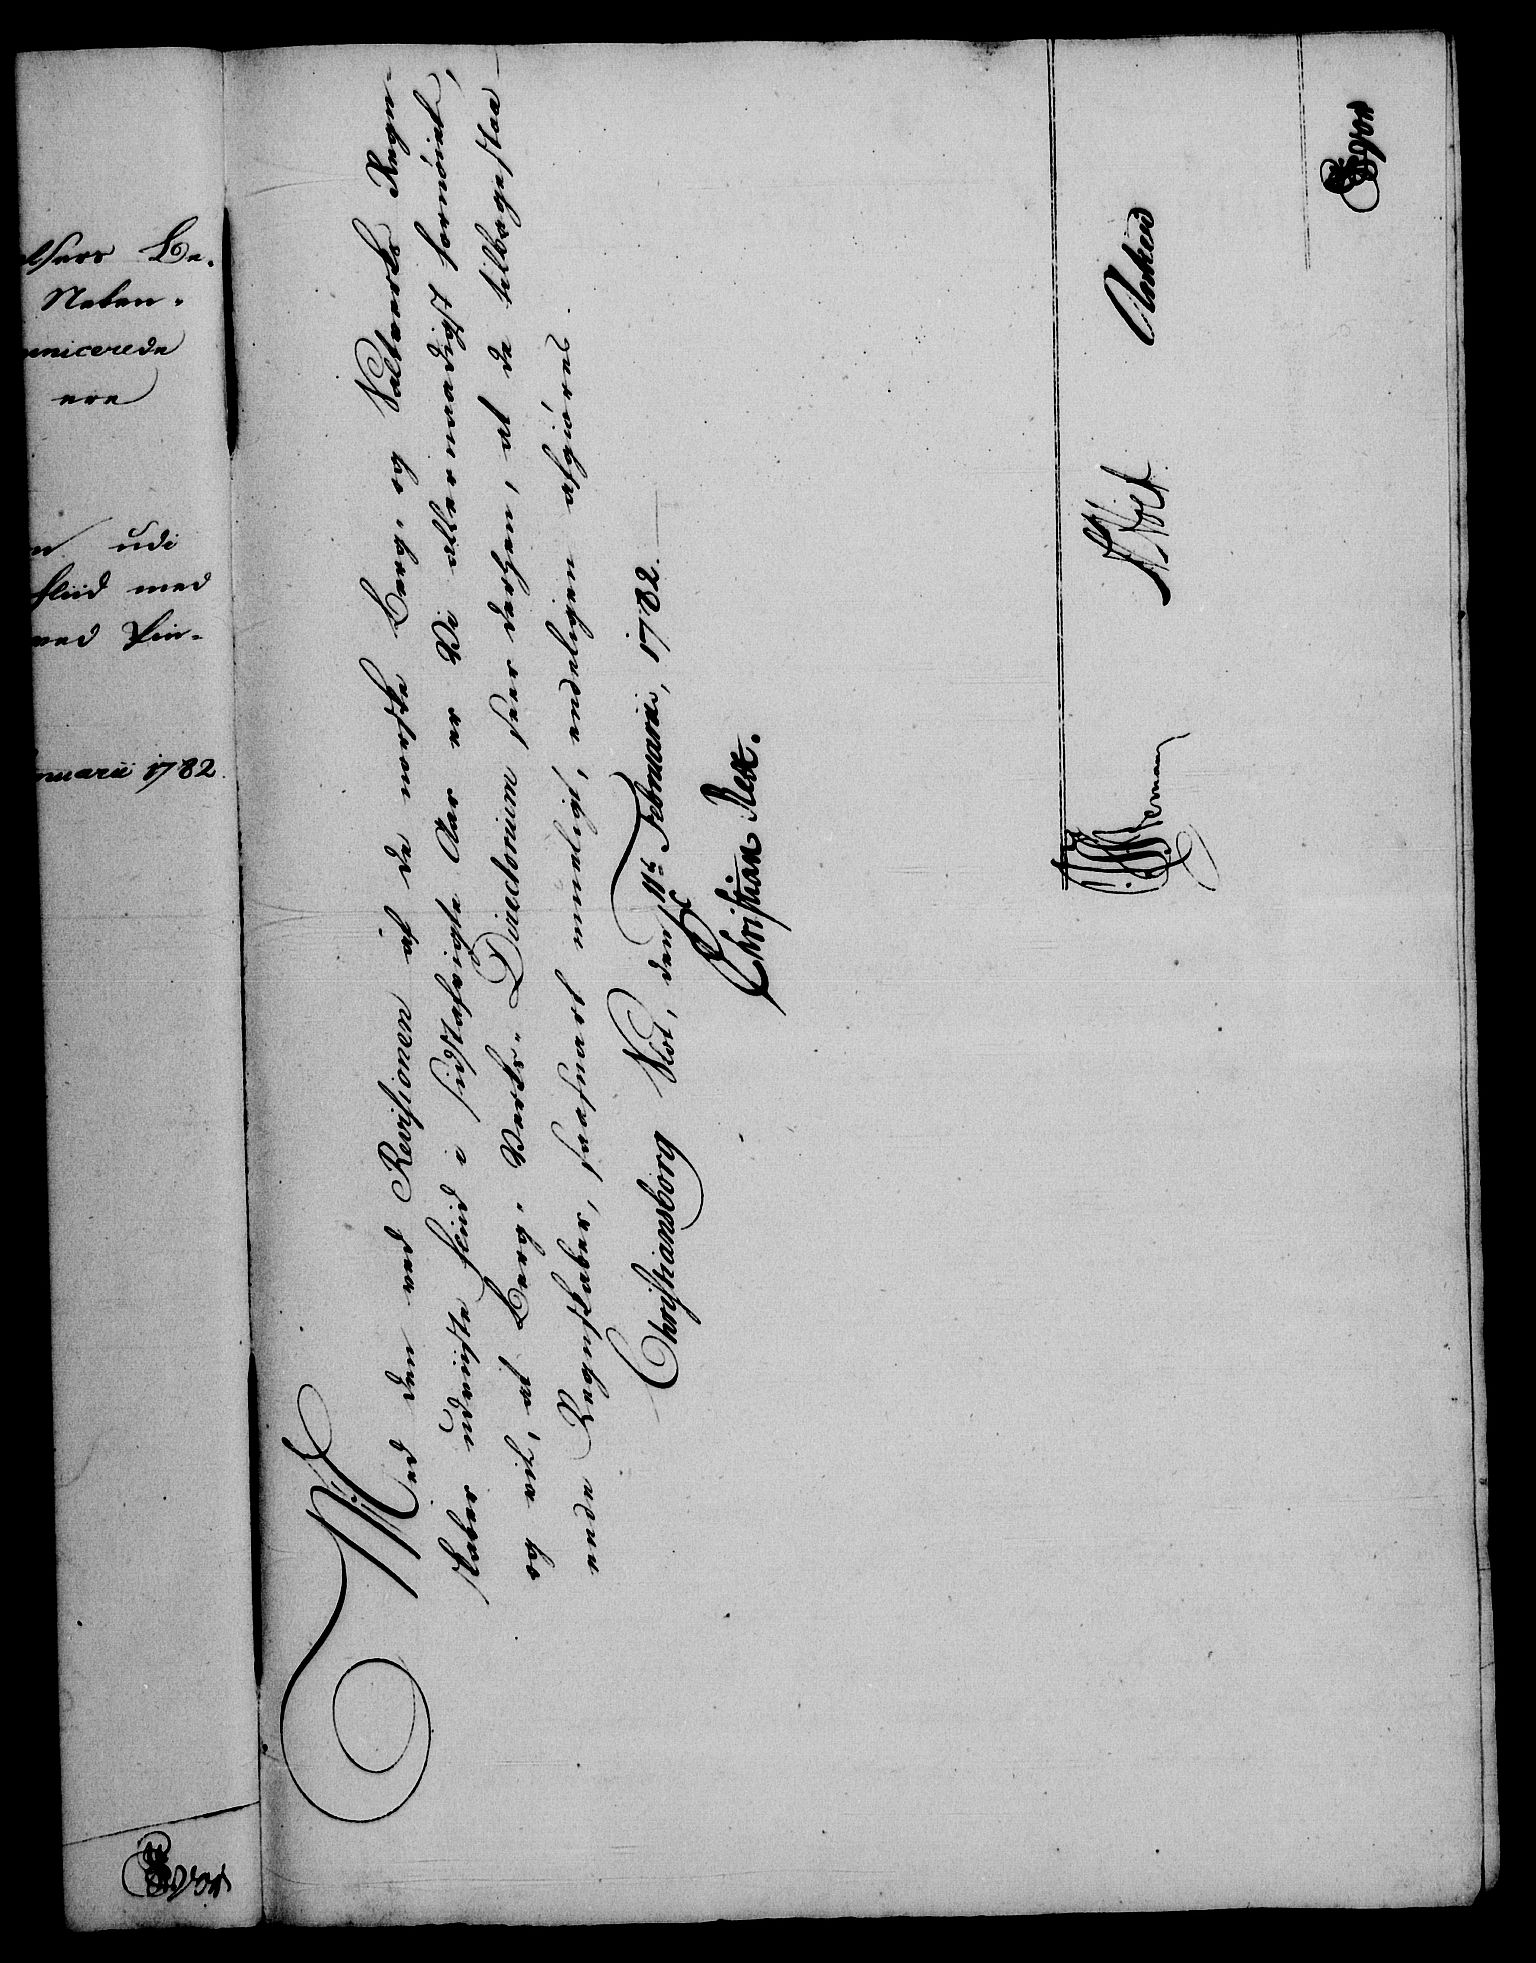 elsers Be-
Neben-
municerede
ere
udi
fliid med
ved Pin-
nuarii 1782.
Med den ved Revisionen af de norske Berg- og Saltverks Regn-
skaber udviiste fliid i sidstafvigte Aar er Vi allernaadigst fornöiet,
og vil, at Berg-Verks-Directorium seer derhen, at de tilbagestaa-
ende Regnskaber, saasnart mueligt, endeligen afgiöres.
Christiansborg Slot, den 11te Februarii, 1782.
Christian Rex.